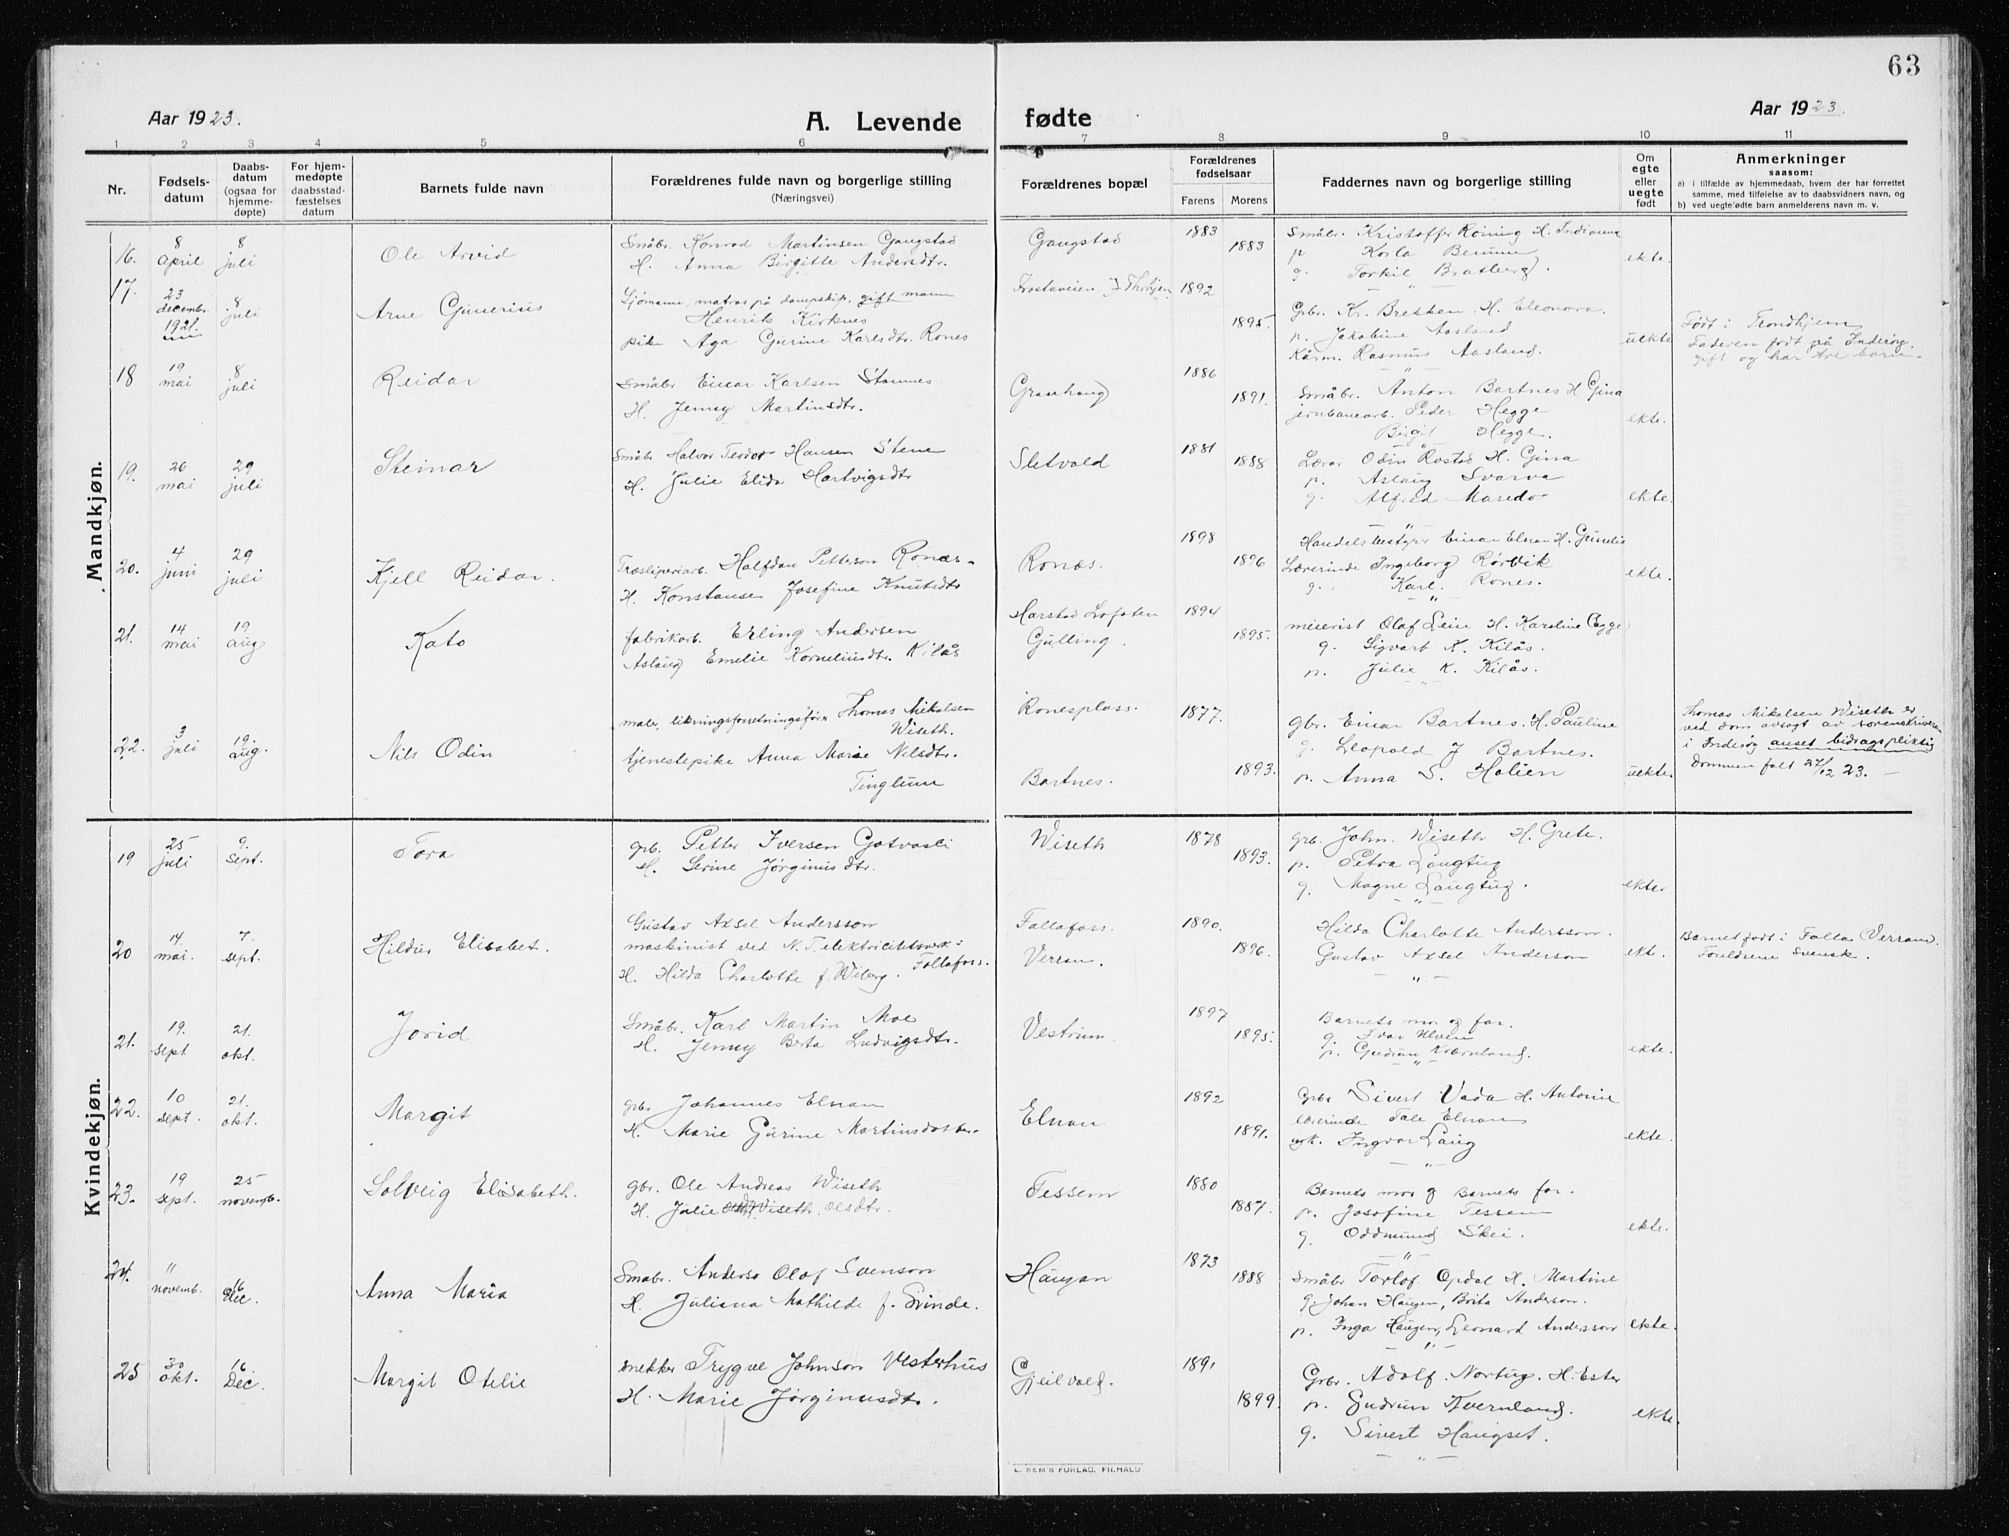 63
Aar 1923.
A. Levende fødte
Aar 1923.
1 2 3 4 5 6 7 8 9 10 11
Nr.
Fødsels-
datum
Daabs-
datum
(ogsaa for
hjemme-
døpte)
For hjem-
medøpte
daabsstad-
fæstelses
datum
Barnets fulde navn
Forældrenes fulde navn og borgerlige stilling
(Næringsvei)
Forældrenes bopæl
Forældrenes
fødselsaar
Farens Morens
Faddernes navn og borgerlige stilling
Om
egte
eller
uegte
født
Anmerkninger
saasom:
a) i tilfælde av hjemmedaab, hvem der har forrettet
samme, med tilføielse av to daabsvidners navn, og
b) ved uegtefødte barn anmelderens navn m. v.
Mandkjøn.
16. 8 april 8 juli Ole Arvid
Småbr. Konrad Martinsen Gangstad
H. Anna Birgitte Andersdtr.
Gangstad 1883 1883
Småbr. Kristoffer Röning H. Indianna
p Karla
g. Torkil Bratberg.
ekte.
17. 23 decembr. 1921. 8 juli Arne Gunerius
Sjömann, matros på dampskip, gift mann
Henrik Kirknes
pike Aga Gurine Karlsdtr. Rones
1892 1895.
Grbr. Kr. Bretten H. Eleonora.
p. Jakobine Aasland
Kårm. Rasmus Aasland.
uekte
Født i Trondhjem
Faderen født på Inderøy.
gift og har tre barn.
18 19 mai 8 juli Reidar
Småbr Einar Karlsen Stamnes
H. Jenny Martinsdtr.
Granhaug 1886 1891.
Småbr. Anton Bartnes H Gina
jernbanearb. Peder Hegge
Birgit Hegge.
ekte.
19. 26 mai 29 juli Steinar
Småbr Halvor Teodor Hansen Stene
H. Julie Elida Hartvigsdtr
Sletvold 1881 1888
Lærer Odin Rostad H. Gina
p. Aslaug Svarva
g. Alfred
ekte.
20. 4 juni 29 juli Kjell Reidar.
Træsliperiarb. Halfdan Petterson Ronæs.
H. Konstanse Josefine Knutsdtr
Ronæs. 1898 1896
Handelsbestyrer Einar Elnan H. Gunelie
Lærerinde Ingeborg Rørvik
g. Karl. Rones.
ekte.
21. 14 mai 19 aug Kato
fabrikarb. Erling Andersen
Aslaug Emelie Korneliusdtr. Kilås
Harstad Lofoten
Gulling. 1894 1895.
meierist Olaf Lein H. Karoline Egge
g. Sigvart K. Kilås.
p. Julie K. Kilås.
22. 3 juli 19. aug. Nils Odin
maler, likningsforretningsfører Thomas Mikalsen
Wiseth.
tjenestepike Anna Marie Nilsdtr.
Tinglum
Ronesplass. 1877.
Bartnes. 1893.
gbr. Einar Bartnes. H. Pauline
g. Leopold J Bartnes.
p. Anna S. Holien
uekte.
Thomas Mikalsen Wiseth er
ved dom avsagt av sorenskriveren
i Inderøy anset bidragspliktig
Dommen falt 27/12 23. -
Kvindekjøn.
19 25 juli 9. sept. Tora
grb. Petter Iversen Gotvasli
H. Serine Jørginusdtr.
Wiseth 1878 1893.
grb. John Wiseth H. Grete.
p. Petra Langtug
g. Magne Langtug.
ekte.
20 14. mai. 7. sept. Hildur Elisabet.
Gustav Axsel Andersson
maskinist ved N. T. elektricitetsverk:
H. Hilda Charlotte f. Weberg. Follafoss.
Follafoss.
Verran. 1890. 1896.
Hilda Charlotte Andersson.
Gustav Axsel Anderson
ekt.
Barnet født i Folla Verran.
Foreldrene svensk.
21. 19. sept 21. okt. Jorid
Småbr. Karl Martin Moe
H. Jenny Berta Ludvigsdtr.
Vestrum. 1897 1895.
Barnets mor og far.
g. Ivar Ulven
p. Gudrun Kvernland.
ekte.
22. 10 sept. 21. okt. Margit
grbr Johannes Elnan
H. Marie Gurine Martinsdatter.
Elnan 1892 1891.
Grbr Sivert Vada H. Antonie
lærerinde Tale Elnan
Ingvar Laug
ekte.
23. 19 sept. 25 novemb. Solveig Elisabeth.
gbr. Ole Andreas Wiseth
H. Julie Wiseth. Olsdtr.
Tessem 1880 1887.
Barnets mor g Barnets far.
p. Josefine Tessem
g. Oddmund Skei.
ekte.
24. 11 novemb. 16 Dec. Anna Maria
Småbr. Anders Olof Svenson
H. Juliana Mathilde f. Svinde.
Haugan 1873 1888
Småbr Torlof Opdal H. Martine
g. Johan Haugen, Brita Anderson.
p. Inga Haugen, Leonard Andersson
ekte.
25 30 okt. 16 Dec. Margit Otelie
snekker Trygve Johnson Vesterhus
H. Marie Jørginusdtr.
Gjeilvold. 1891 1899.
Grbr. Adolf Nortug. H. Ester
p. Gudrun Kvernland.
g. Sivert Haugset.
ekte.